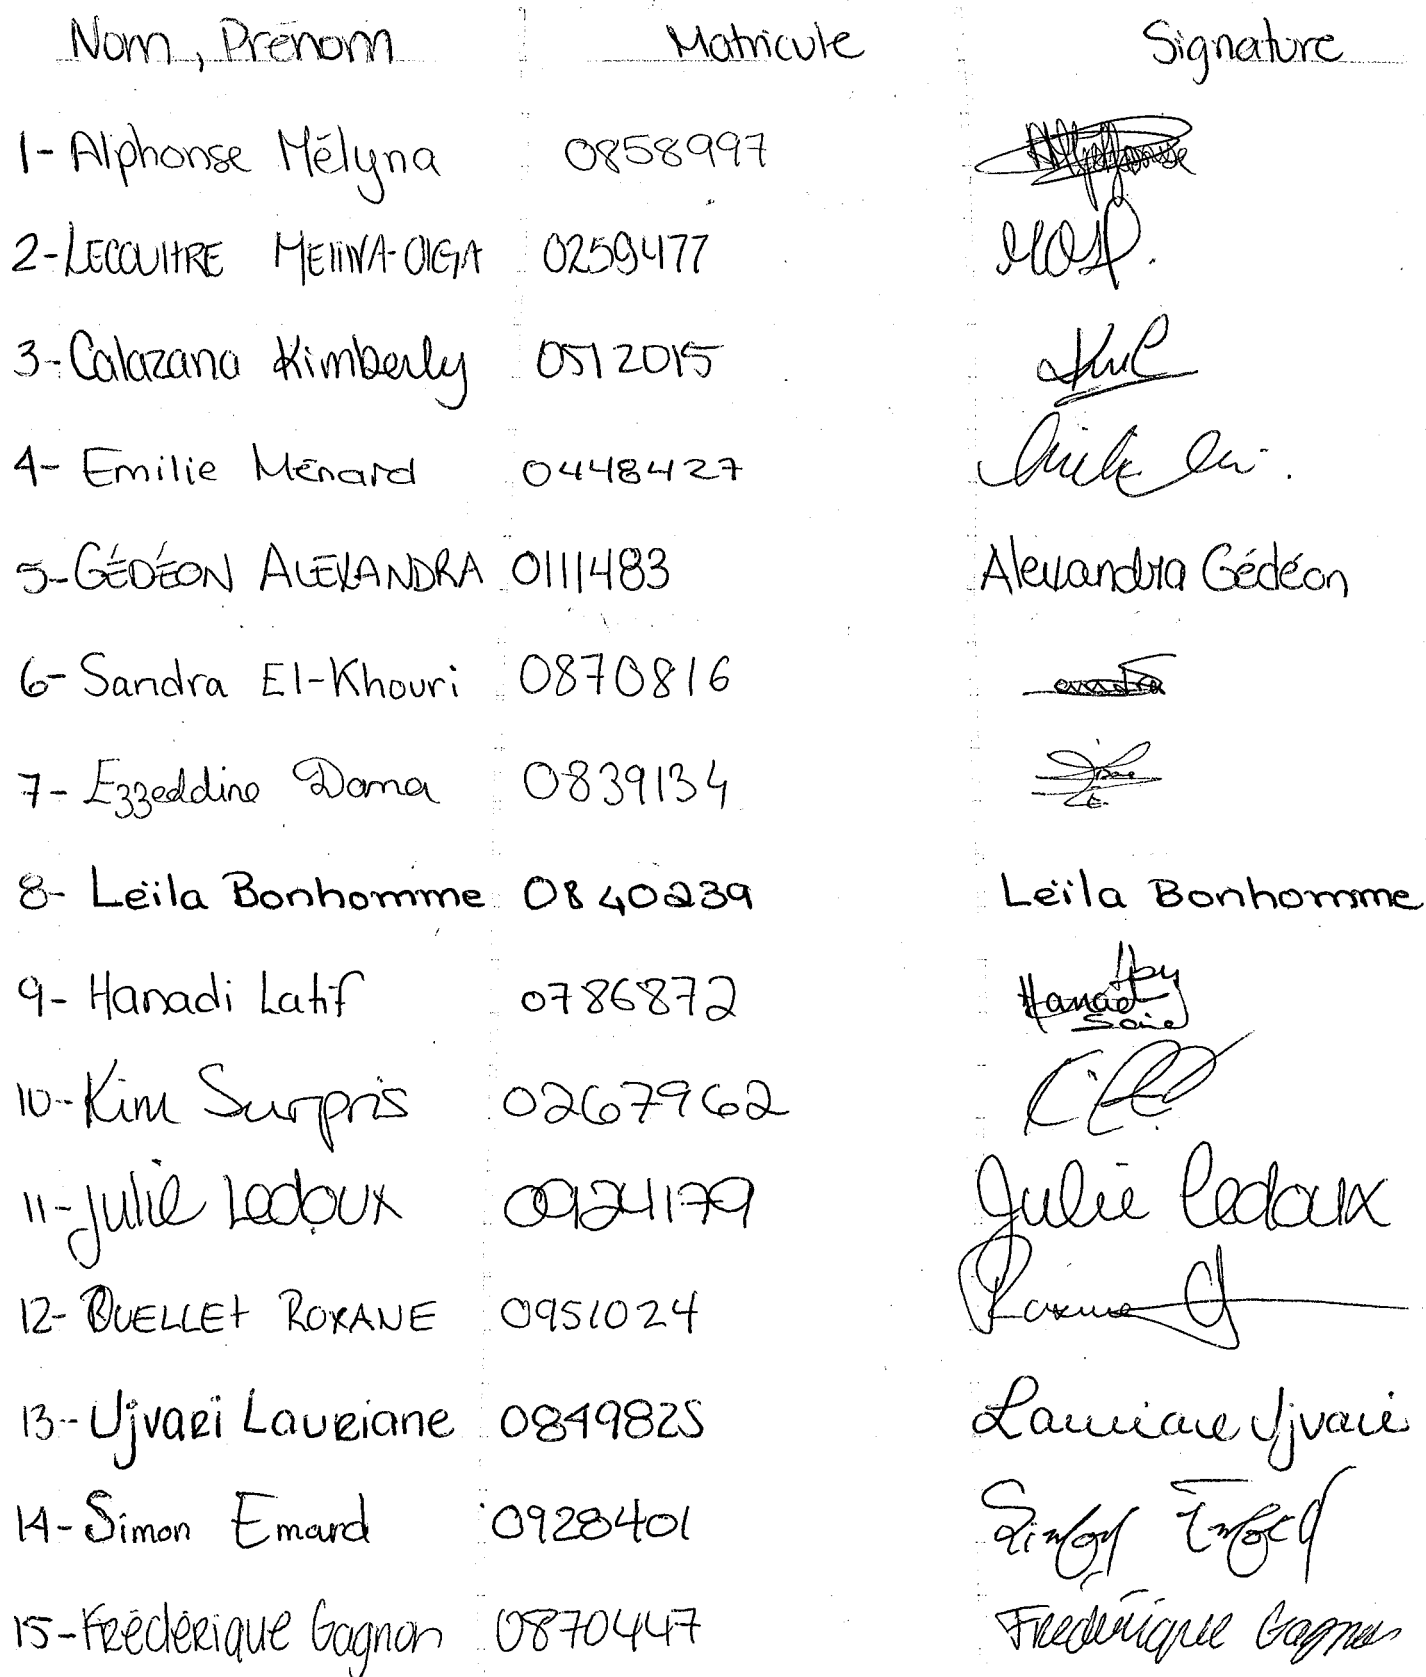 Nom, Prénom Matricule Signature
1- Alphonse Mélyna 0858997
2- LECOUITRE MELINA-OLGA 0259477
3- Calazana Kimberly 0512015
4- Emilie Ménard 0448427
5- GÉDÉON ALEXANDRA 0111483 Alexandra Gédéon
6- Sandra El-Khouri 0870816
7- Ezzeddine Dana 0839134
8- Leïla Bonhomme 0840239 Leïla Bonhomme
9- Hanadi Latif 0786872
10- Kim Surpris 0267962
11- Julie Ledoux 0924179 Julie Ledoux
12- OUELLET ROXANE 0951024 Roxane
13- Ujvari Lauriane 0849825 Lauriane Ujvari
14- Simon Emard 0928401
15- Frédérique Gagnon 0870447 Frédérique Gagnon